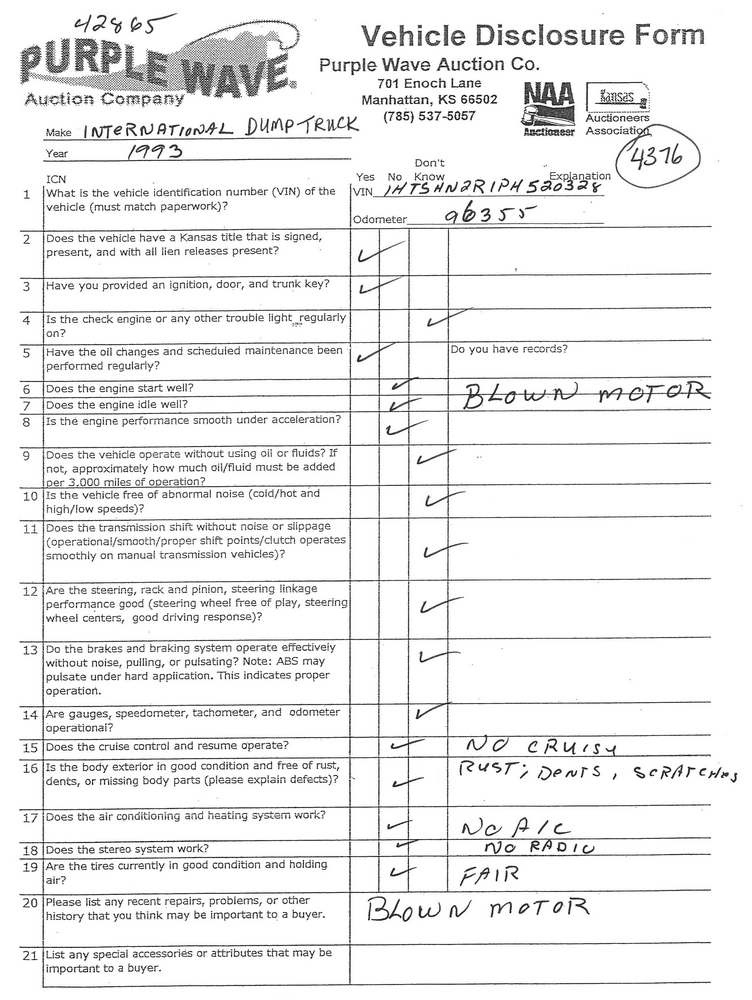 42865
PURPLE WAVE.
Auction Company
Vehicle Disclosure Form
Purple Wave Auction Co.
701 Enoch Lane
Manhattan, KS 66502
(785) 537-5057
NAA
Auctioneer
Kansas
Auctioneers
Association
4376
Make INTERNATIONAL DUMP TRUCK
Year 1993
Don't
ICN Yes No Know Explanation
1 What is the vehicle identification number (VIN) of the VIN 1HTSHN2R1PH520328
vehicle (must match paperwork)?
Odometer 96355
2 Does the vehicle have a Kansas title that is signed,
present, and with all lien releases present?
3 Have you provided an ignition, door, and trunk key?
4 Is the check engine or any other trouble light regularly
on?
5 Have the oil changes and scheduled maintenance been Do you have records?
performed regularly?
6 Does the engine start well? BLOWN MOTOR
7 Does the engine idle well?
8 Is the engine performance smooth under acceleration?
9 Does the vehicle operate without using oil or fluids? If
not, approximately how much oil/fluid must be added
per 3,000 miles of operation?
10 Is the vehicle free of abnormal noise (cold/hot and
high/low speeds)?
11 Does the transmission shift without noise or slippage
(operational/smooth/proper shift points/clutch operates
smoothly on manual transmission vehicles)?
12 Are the steering, rack and pinion, steering linkage
performance good (steering wheel free of play, steering
wheel centers, good driving response)?
13 Do the brakes and braking system operate effectively
without noise, pulling, or pulsating? Note: ABS may
pulsate under hard application. This indicates proper
operation.
14 Are gauges, speedometer, tachometer, and odometer
operational?
15 Does the cruise control and resume operate? NO CRUISE
16 Is the body exterior in good condition and free of rust, RUST; DENTS, SCRATCHES
dents, or missing body parts (please explain defects)?
17 Does the air conditioning and heating system work? NO A/C
18 Does the stereo system work? NO RADIO
19 Are the tires currently in good condition and holding FAIR
air?
20 Please list any recent repairs, problems, or other BLOWN MOTOR
history that you think may be important to a buyer.
21 List any special accessories or attributes that may be
important to a buyer.